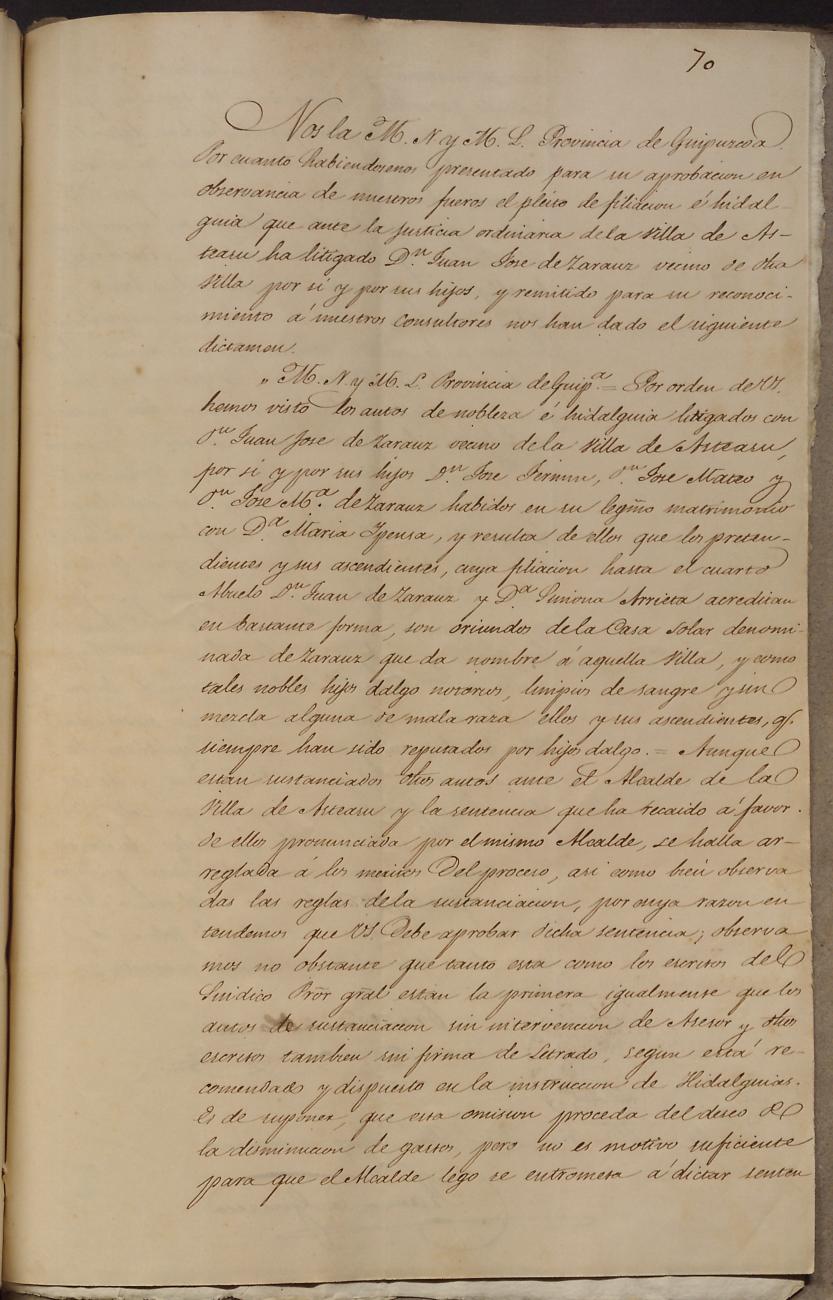 70
Nos la M. N y M. L. Provincia de Guipuzcoa
Por cuanto habiendosenos presentado para su aprobacion en
observancia de nuestros fueros el pleito de filiacion é hidal-
guia que ante la Justicia ordinaria de la Villa de As-
teasu ha litigado D.n Juan Jose de Zarauz vecino de dha
Villa por sí y por sus hijos, y remitido para su reconoci-
miento á nuestros Consultores nos han dado el siguiente
dictamen.
„ M. N. y M. L. Provincia de Guip.a = Por orden de VS.
hemos visto los autos de nobleza é hidalguia litigados con
D.n Juan Jose de Zarauz vecino de la Villa de Asteasu,
por sí y por sus hijos D.n Jose Fermin, D.n Jose Mateo y
D.n Jose M.a de Zarauz habidos en su legmo matrimonio
con D.a Maria Ipensa, y resulta de ellos que los preten-
dientes y sus ascendientes, cuya filiacion hasta el cuarto
Abuelo D.n Juan de Zarauz y D.a Simona Arrieta acreditan
en bastante forma, son oriundos de la Casa solar denomi-
nada de Zarauz que da nombre á aquella Villa, y como
tales nobles hijos dalgo notorios, limpios de sangre y sin
mezcla alguna de mala raza ellos y sus ascendientes, q.
siempre han sido reputados por hijos dalgo. = Aunque
estan sustanciados dhos autos ante el Alcalde de la
Villa de Asteasu y la sentencia que ha recaido á favor
de ellos pronunciada por el mismo Alcalde, se halla ar-
reglada á los meritos del proceso, asi como bien observa
das las reglas de la sustanciacion, por cuya razon en-
tendemos que VS. debe aprobar dicha sentencia; observa
mos no obstante que tanto esta como los escritos del
Sindico Pror gral estan la primera igualmente que los
autos de sustanciacion sin intervencion de Asesor y dhos
escritos tambien sin firma de Letrado, segun está re-
comendado y dispuesto en la instruccion de Hidalguias.
Es de suponer, que esta omision proceda del deseo de
la disminucion de gastos, pero no es motivo suficiente
para que el Alcalde lego se entrometa á dictar senten